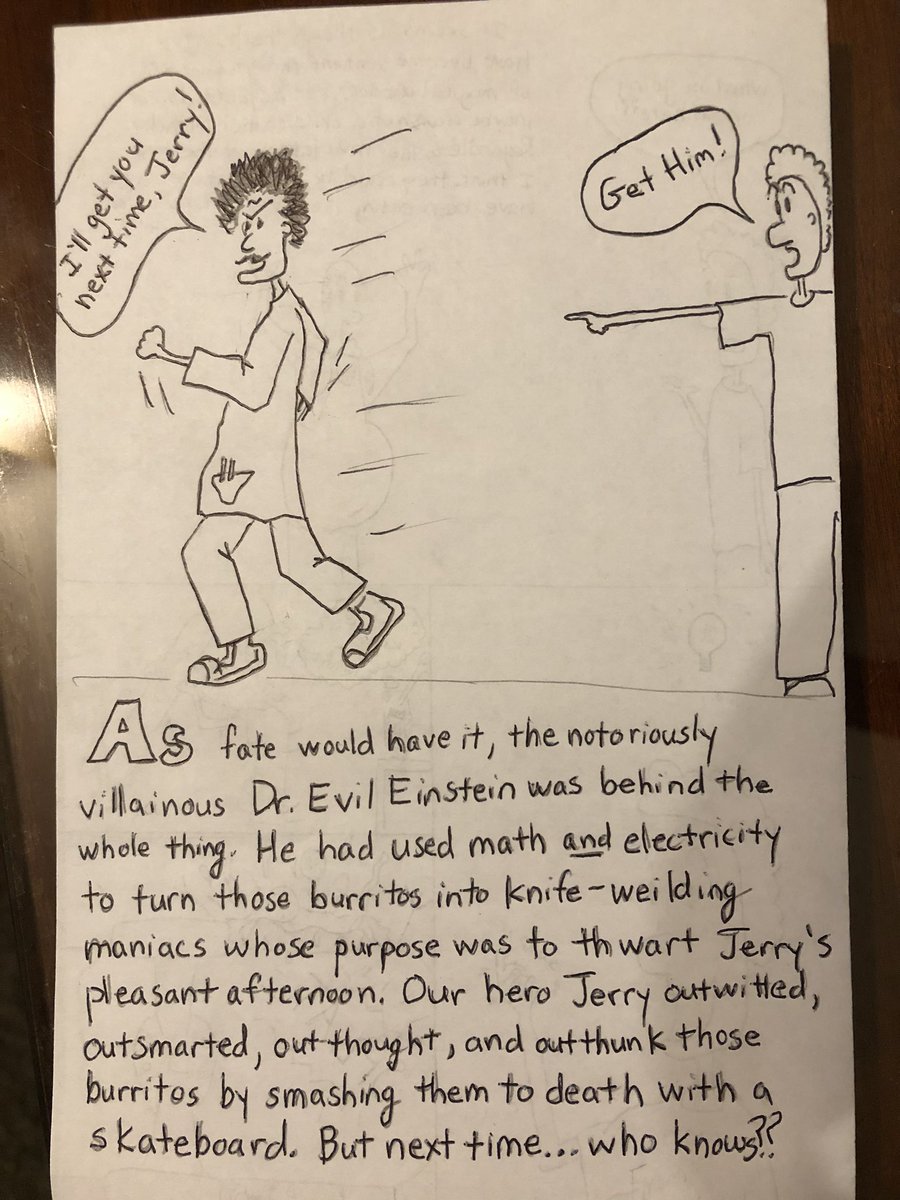 I'll get you
next time, Jerry!
Get Him!
As fate would have it, the notoriously
villainous Dr. Evil Einstein was behind the
whole thing. He had used math and electricity
to turn those burritos into knife-weilding
maniacs whose purpose was to thwart Jerry's
pleasant afternoon. Our hero Jerry outwitted,
outsmarted, outthought, and outthunk those
burritos by smashing them to death with a
skateboard. But next time... who knows??